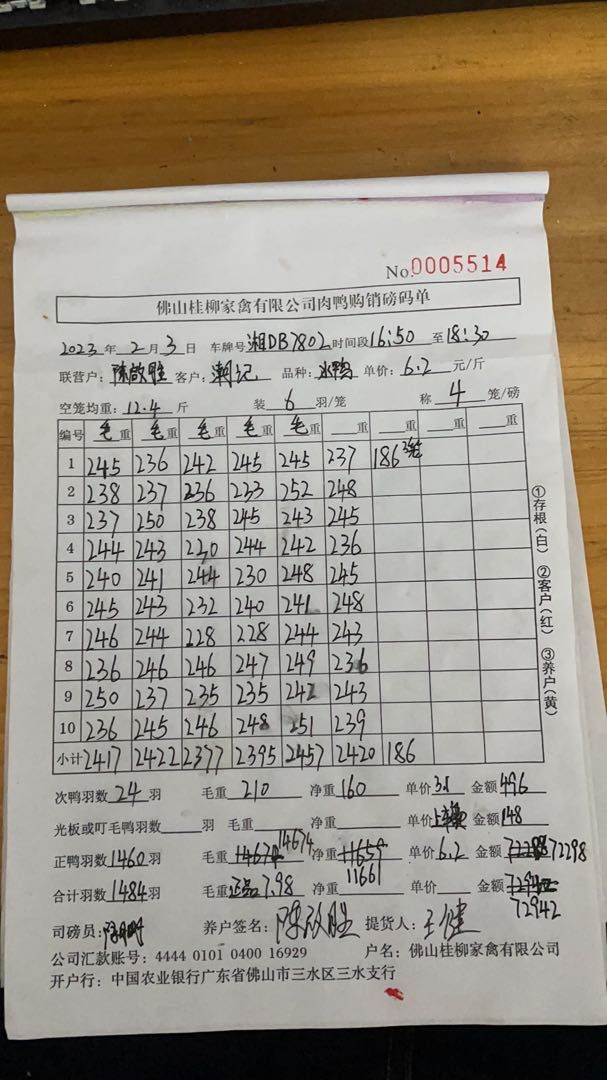 No.0005514
佛山桂柳家禽有限公司肉鸭购销磅码单
2023 年 2 月 3 日 车牌号 湘DB7802 时间段 16:50 至 18:30
联营户: 陈啟胜 客户: 潮记 品种: 水鸭 单价: 6.2 元/斤
空笼均重: 12.4 斤 装 6 羽/笼 称 4 笼/磅
编号 毛重 毛重 毛重 毛重 毛重 重 重 重 重
1 245 236 242 245 245 237 186 3笼
2 238 237 236 233 252 248
3 237 250 238 245 243 245
4 244 243 220 244 242 236
5 240 241 244 230 248 245
6 245 243 232 240 241 248
7 246 244 228 228 244 243
8 236 246 246 247 249 236
9 250 237 235 235 242 243
10 236 245 246 248 251 239
小计 2417 2422 2377 2395 2457 2420 186
①存根(白) ②客户(红) ③养户(黄)
次鸭羽数 24 羽 毛重 210 净重 160 单价 3.1 金额 496
光板或叮毛鸭羽数 羽 毛重 净重 单价 金额 148
正鸭羽数 1460 羽 毛重 14674 净重 11661 单价 6.2 金额 72298
合计羽数 1484 羽 毛重 正品 7.98 净重 单价 金额 72942
司磅员: 养户签名: 陈啟胜 提货人: 王健
公司汇款账号: 4444 0101 0400 16929 户名: 佛山桂柳家禽有限公司
开户行: 中国农业银行广东省佛山市三水区三水支行